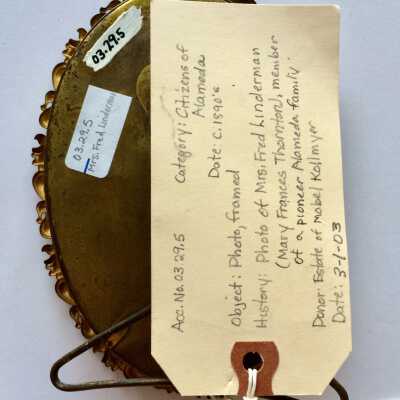 03.29.5
03.29.5
Mrs. Fred Linderman
Acc. No. 03 29.5 Category: Citizens of
Alameda
Date: C. 1890's
Object: Photo, framed
History: Photo of Mrs. Fred Linderman
(Mary Frances Thornton), member
of a pioneer Alameda family.
Donor: Estate of Mabel Kollmyer
Date: 3-1-03